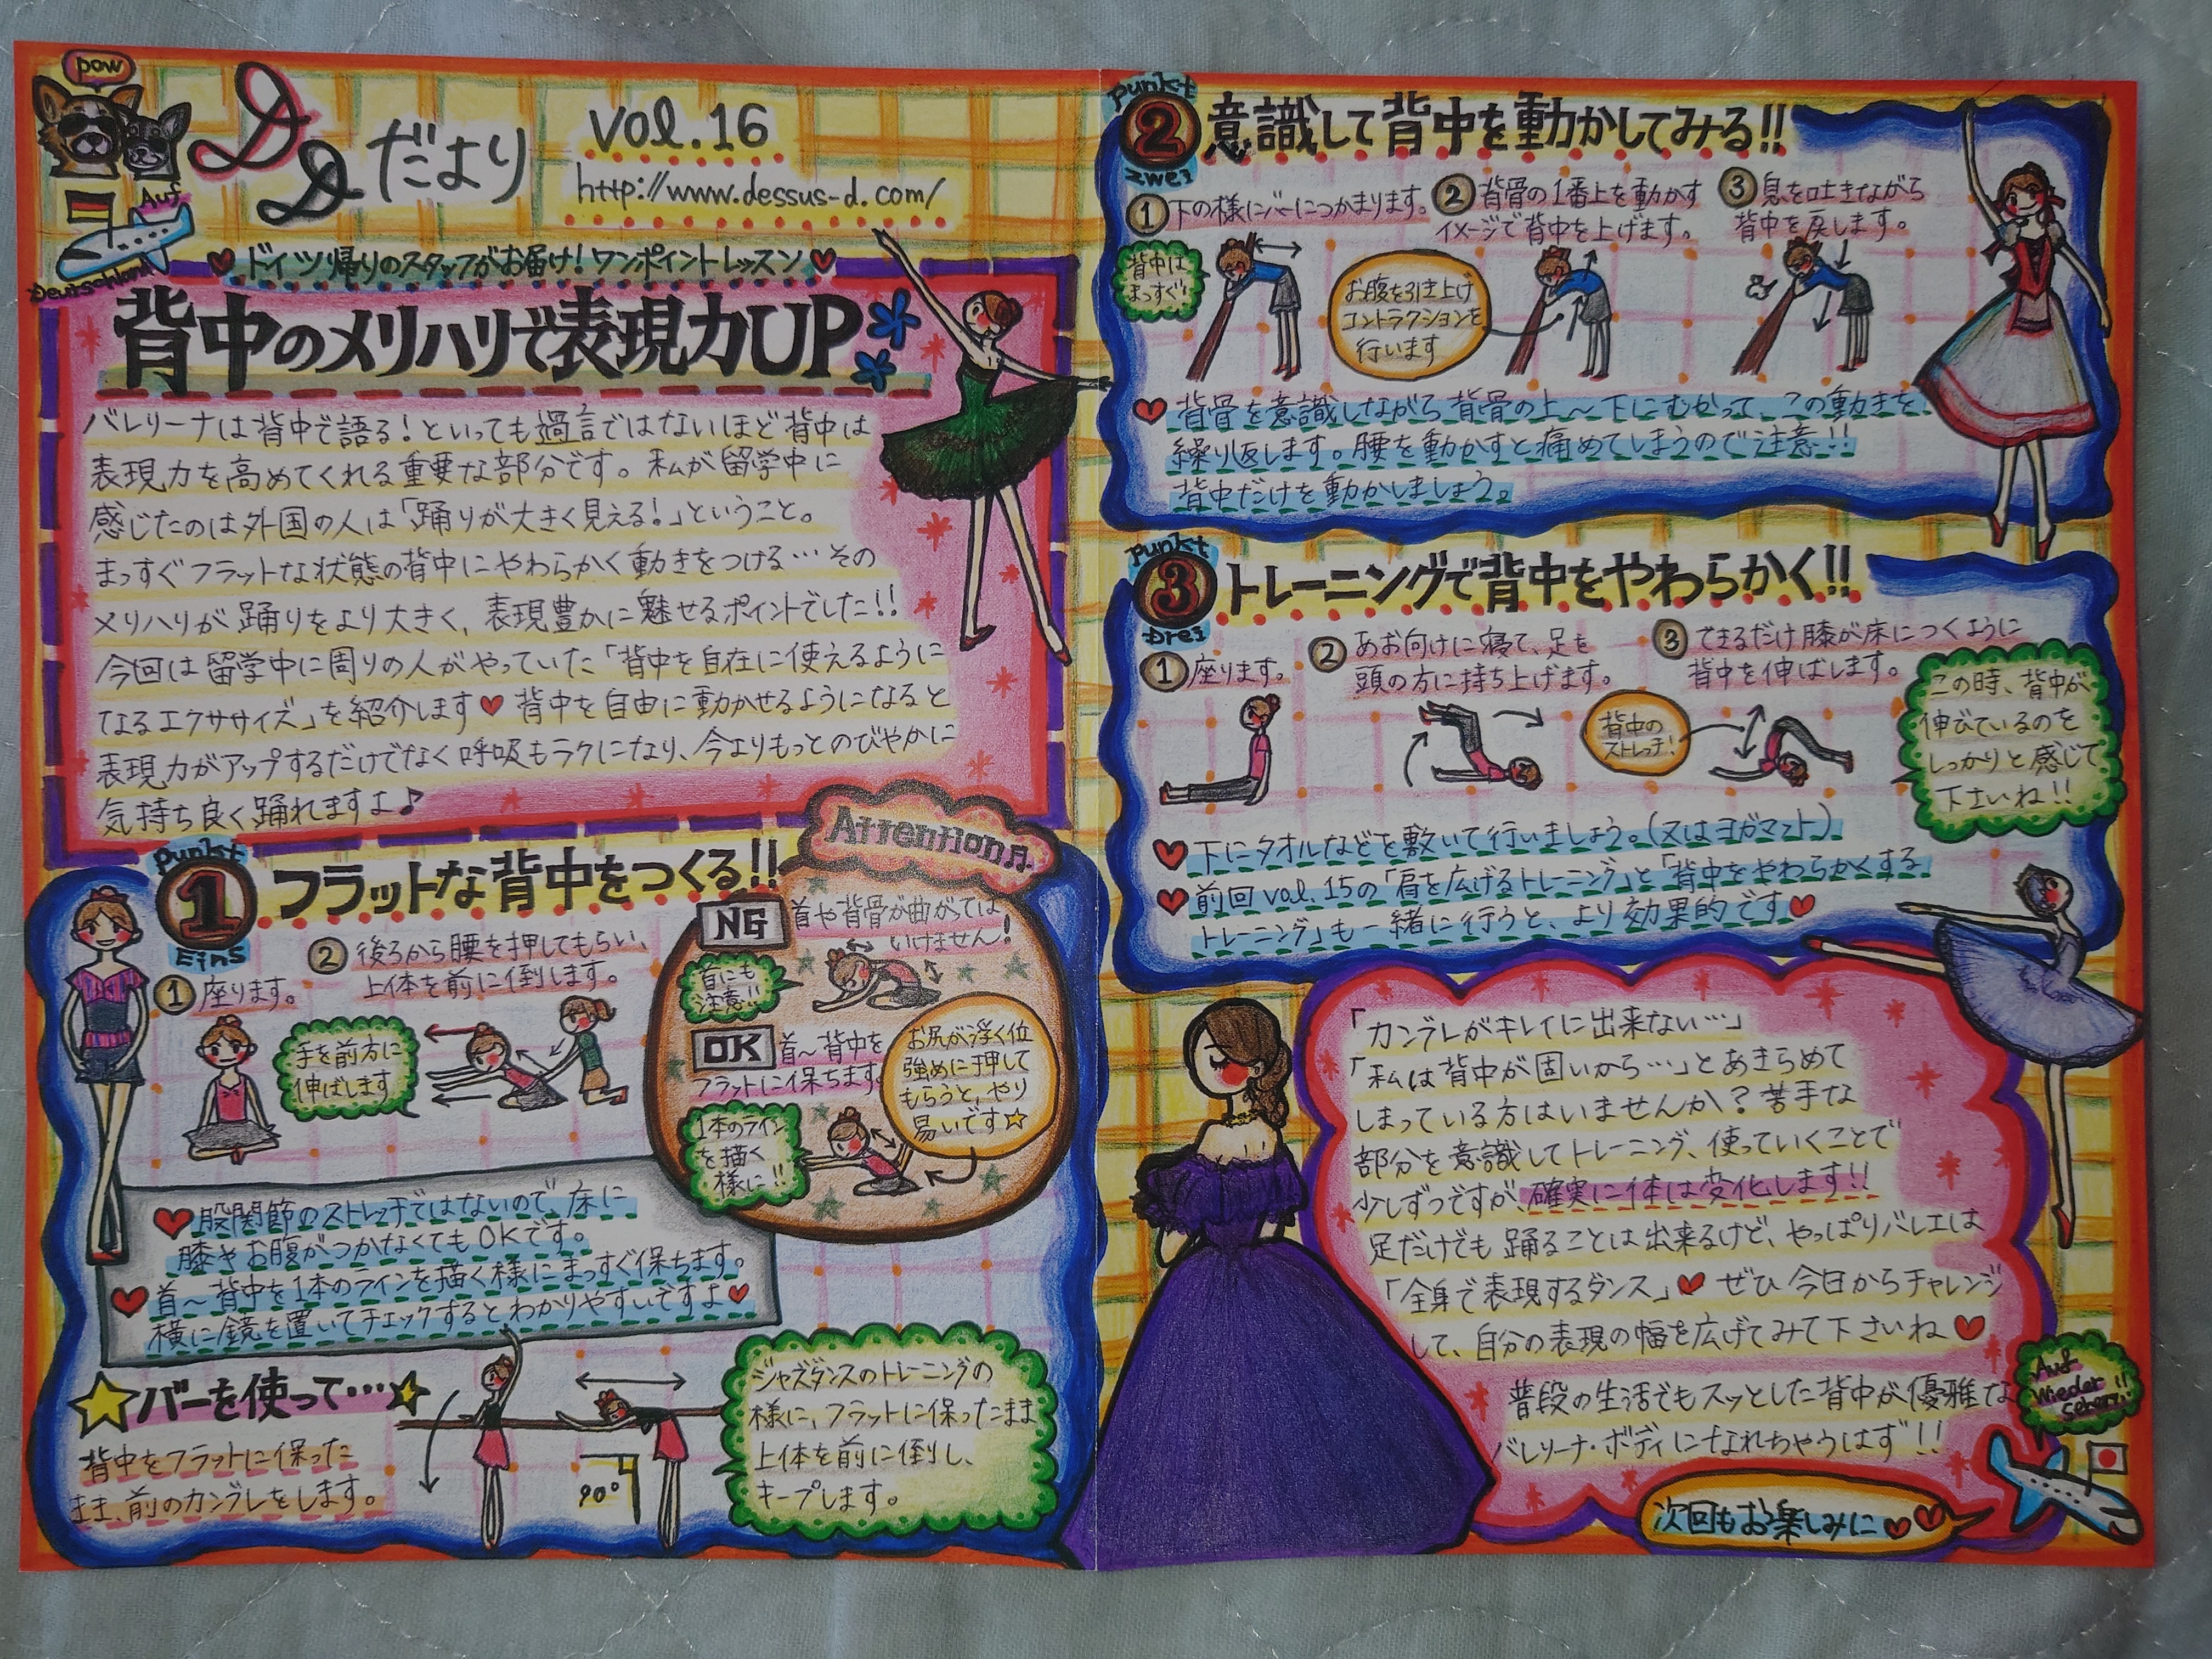 pow
DDだより
vol.16
http://www.dessus-d.com/
Auf
Deutschland
ドイツ帰りのスタッフがお届け!ワンポイントレッスン
背中のメリハリで表現力UP
バレリーナは背中で語る!といっても過言ではないほど背中は
表現力を高めてくれる重要な部分です。私が留学中に
感じたのは外国の人は「踊りが大きく見える!」ということ。
まっすぐフラットな状態の背中にやわらかく動きをつける…その
メリハリが踊りをより大きく、表現豊かに魅せるポイントでした!!
今回は留学中に周りの人がやっていた「背中を自在に使えるように
なるエクササイズ」を紹介します♥背中を自由に動かせるようになると
表現力がアップするだけでなく呼吸もラクになり、今よりもっとのびやかに
気持ち良く踊れますよ♪
Punkt
1
Eins
フラットな背中をつくる!!
①座ります。
②後ろから腰を押してもらい、
上体を前に倒します。
手を前方に
伸ばします
Attention♫
NG
首や背骨が曲がっては
いけません!
首にも
注意!!
OK
首〜背中を
フラットに保ちます
1本のライン
を描く
様に!!
お尻が浮く位
強めに押して
もらうと、やり
易いです☆
♥股関節のストレッチではないので、床に
膝やお腹がつかなくてもOKです。
♥首〜背中を1本のラインを描く様にまっすぐ保ちます。
横に鏡を置いてチェックするとわかりやすいですよ♥
バーを使って…
背中をフラットに保った
まま、前のカンブレをします。
90°
ジャズダンスのトレーニングの
様に、フラットに保ったまま
上体を前に倒し、
キープします。
Punkt
2
zwei
意識して背中を動かしてみる!!
①下の様にバーにつかまります。
②背骨の1番上を動かす
イメージで背中を上げます。
③息を吐きながら
背中を戻します。
背中は
まっすぐ
お腹を引き上げ
コントラクションを
行います
♥背骨を意識しながら背骨の上〜下にむかって、この動きを
繰り返します。腰を動かすと痛めてしまうので注意!!
背中だけを動かしましょう。
Punkt
3
Drei
トレーニングで背中をやわらかく!!
①座ります。
②あお向けに寝て、足を
頭の方に持ち上げます。
③できるだけ膝が床につくように
背中を伸ばします。
背中の
ストレッチ!
この時、背中が
伸びているのを
しっかりと感じて
下さいね!!
♥下にタオルなどを敷いて行いましょう。(又はヨガマット)
♥前回vol.15の「肩を広げるトレーニング」と「背中をやわらかくする
トレーニング」も一緒に行うと、より効果的です♥
「カンブレがキレイに出来ない…」
「私は背中が固いから…」とあきらめて
しまっている方はいませんか?苦手な
部分を意識してトレーニング、使っていくことで
少しずつですが、確実に体は変化します!!
足だけでも踊ることは出来るけど、やっぱりバレエは
「全身で表現するダンス」♥ぜひ今日からチャレンジ
して、自分の表現の幅を広げてみて下さいね♥
普段の生活でもスッとした背中が優雅な
バレリーナ・ボディになれちゃうはず!!
Auf
Wieder
sehen!!
次回もお楽しみに♥♥